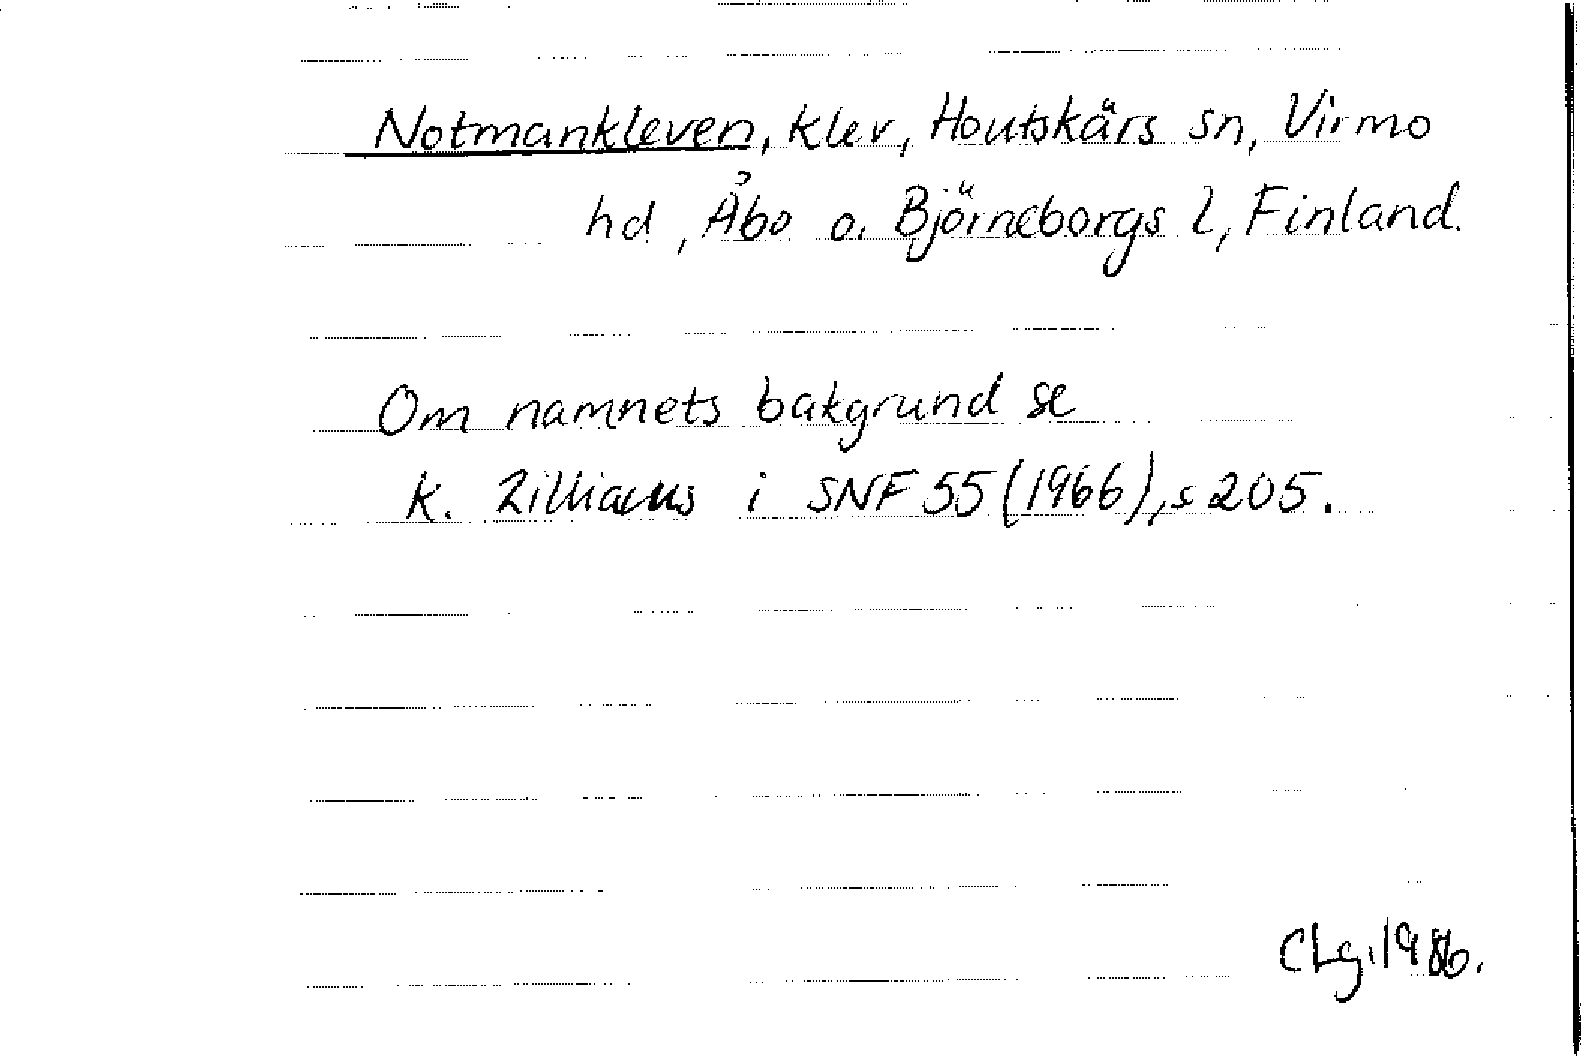 Notmankleven, klev, Houtskärs sn, Virmo
hd, Åbo o. Björneborgs l, Finland.
Om namnets bakgrund se
K. Zilliacus i SNF 55 (1966), s 205.
CLg. 1986.